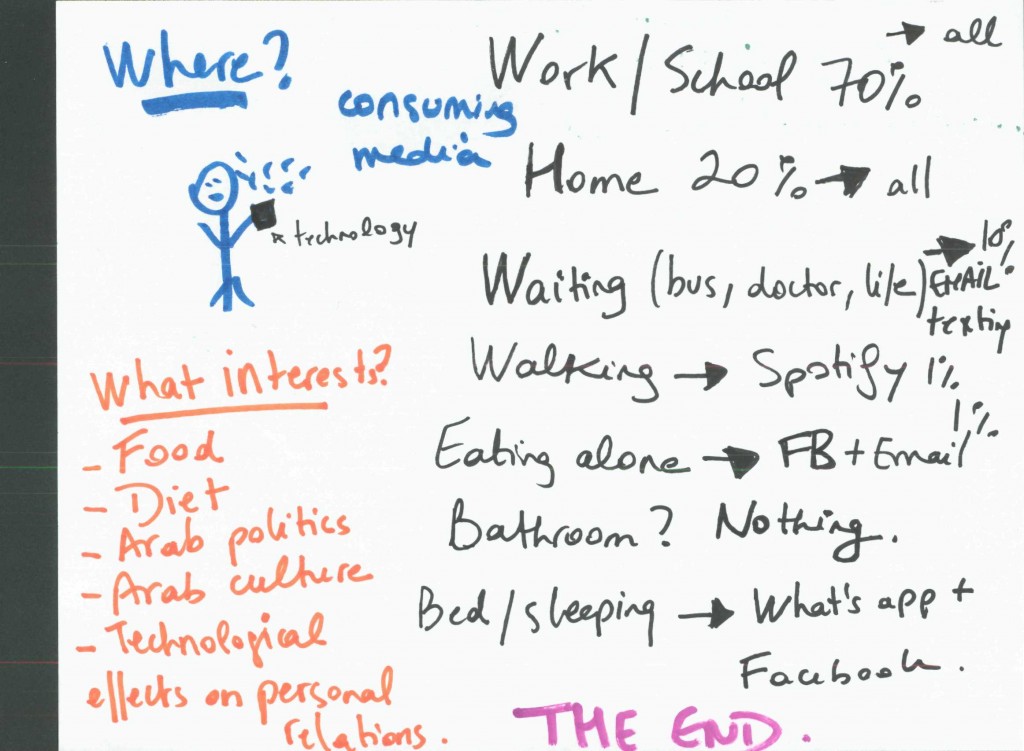 Where?
consuming
media
technology
What interests?
- Food
- Diet
- Arab politics
- Arab culture
- Technological
effects on personal
relations.
Work / School 70% → all
Home 20% → all
Waiting (bus, doctor, life) →
EMAIL
texting
Walking → Spotify 1%
1%
Eating alone → FB + Email
Bathroom? Nothing.
Bed / sleeping → What's app +
Facebook.
THE END.